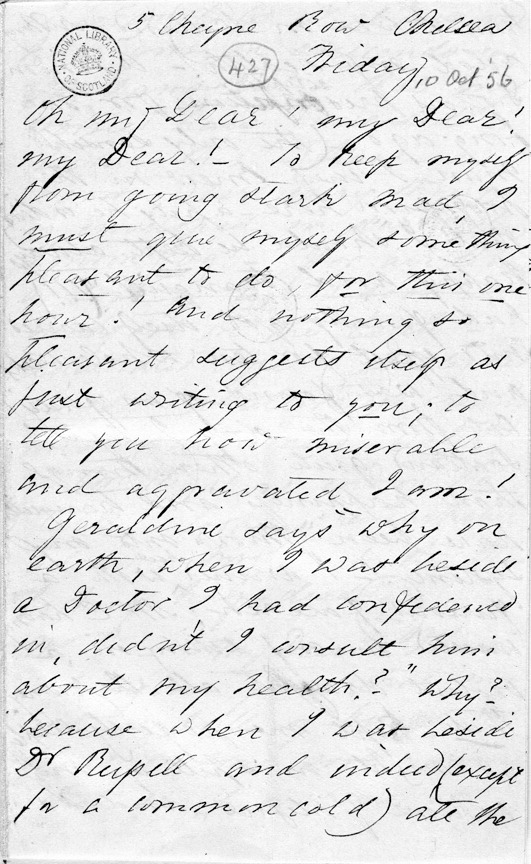 5 Cheyne Row Chelsea
NATIONAL LIBRARY OF SCOTLAND
427
Friday, 10 Oct '56
Oh my Dear! my Dear!
my Dear!— To keep myself
from going stark mad I
must give myself something
pleasant to do, for this one
hour! And nothing so
pleasant suggests itself as
just writing to you; to
tell you how miserable
and aggravated I am!
Geraldine says "why on
earth, when I was beside
a Doctor I had confidence
in, didn't I consult him
about my health?" Why?
because when I was beside
Dr Russell and indeed (except
for a common cold) all the